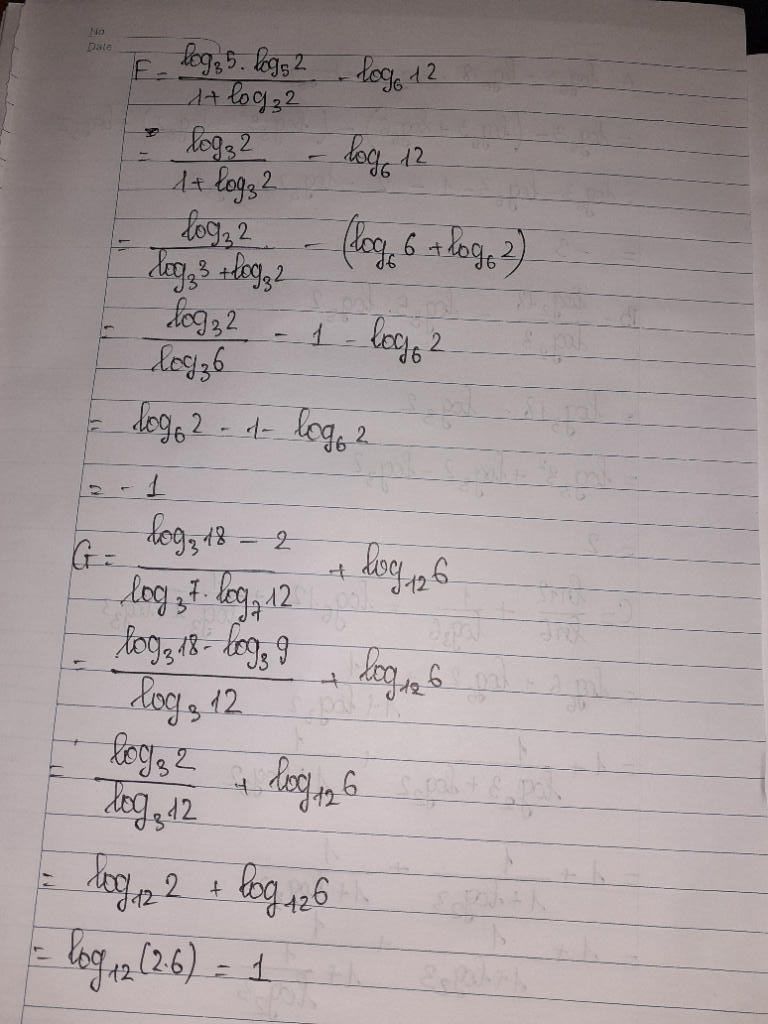 No
Date
F = \frac{log₃5 . log₅2}{1 + log₃2} - log₆12
= \frac{log₃2}{1 + log₃2} - log₆12
= \frac{log₃2}{log₃3 + log₃2} - (log₆6 + log₆2)
= \frac{log₃2}{log₃6} - 1 - log₆2
= log₆2 - 1 - log₆2
= - 1
G = \frac{log₃18 - 2}{log₃7 . log₇12} + log₁₂6
= \frac{log₃18 - log₃9}{log₃12} + log₁₂6
= \frac{log₃2}{log₃12} + log₁₂6
= log₁₂2 + log₁₂6
= log₁₂(2.6) = 1